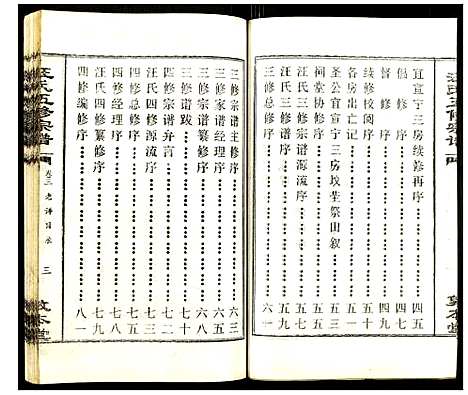 汪氏五修宗谱
宜宣宁三房续修再序……四五
倡修序……四六
督修序……四七
续修校阅序……五十
各房出亡记……五一
圣公官宣宁三房坟茔祭田叙……五三
祠堂协修序……五五
汪氏三修宗谱源流序……五七
三修总修序……五九
三修经理序……六一
三修宗谱主修序……六三
三修家谱序……六五
三修宗谱纂修序……六八
三修谱跋……六九
四修宗谱弁言……七二
汪氏四修源流序……七三
四修总修序……七五
四修经理序……七七
汪氏四修纂修序……七九
四修编修序……八一
汪氏五修宗谱
卷三
老谱目录
三
敦本堂